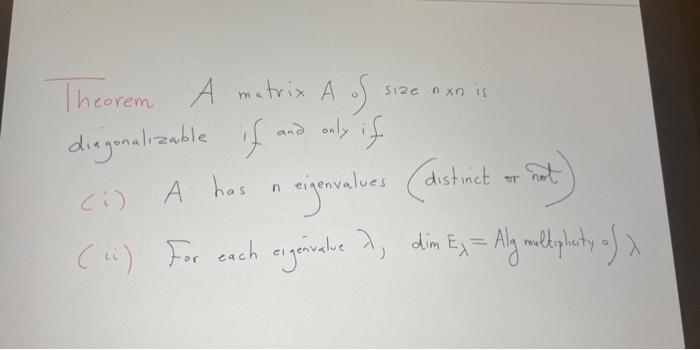 Theorem A matrix A of size n x n is
diagonalizable if and only if
(i) A has n eigenvalues (distinct or not)
(ii) For each eigenvalue λ, dim E_λ = Alg multiplicity of λ